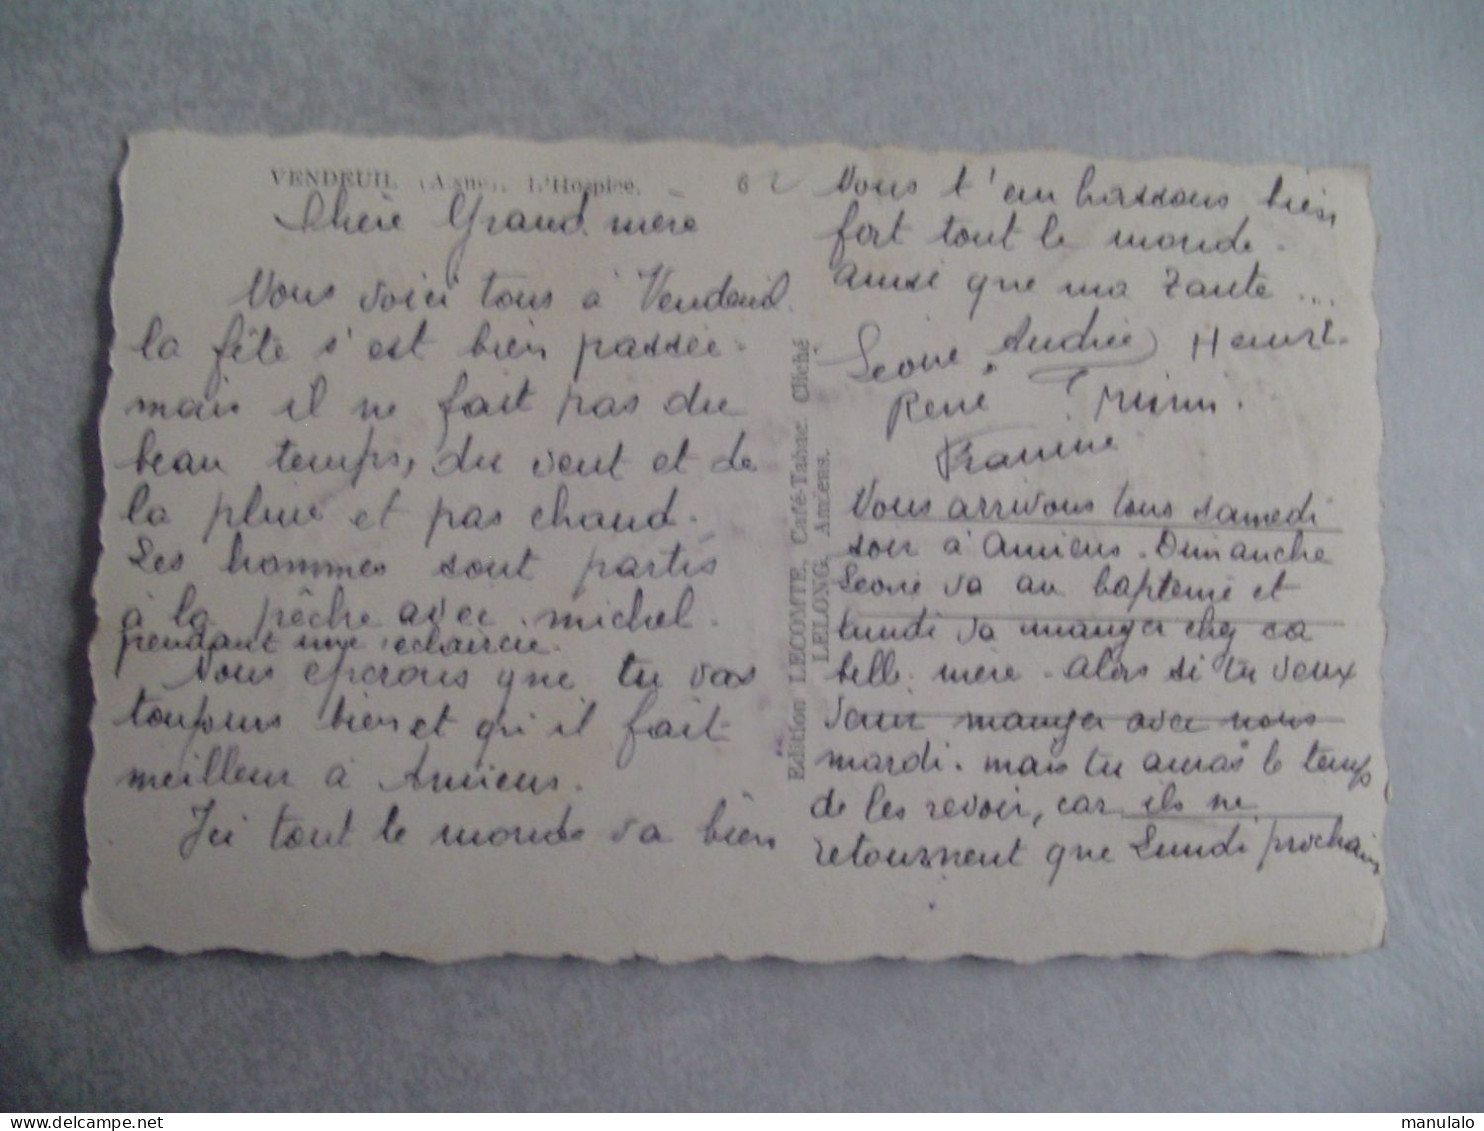 VENDEUIL (Aisne). L'Hospice. 62
Chère Grand. mère
Nous voici tous à Vendeuil.
la fête s'est bien passée.
mais il ne fait pas du
beau temps, du vent et de
la pluie et pas chaud.
Les hommes sont partis
à la pêche avec michel.
pendant une éclaircie.
Nous éperons que tu vas
toujours bien et qu'il fait
meilleur à Amiens.
Ici tout le monde va bien
Nous t'embrassons bien
fort tout le monde.
ainsi que ma Tante ...
Léone. Andrée Henri.
René Mimi.
Francine
Nous arrivons tous samedi
soir à Amiens. Dimanche
Léone va au baptême et
lundi va manger chez sa
belle. mère. alors si tu veux
venir manger avec nous
mardi. mais tu auras le temps
de les revoir, car ils ne
retournent que Lundi prochain
Edition LECOMTE, Café-Tabac. Cliché
LELONG, Amiens.
manulalo